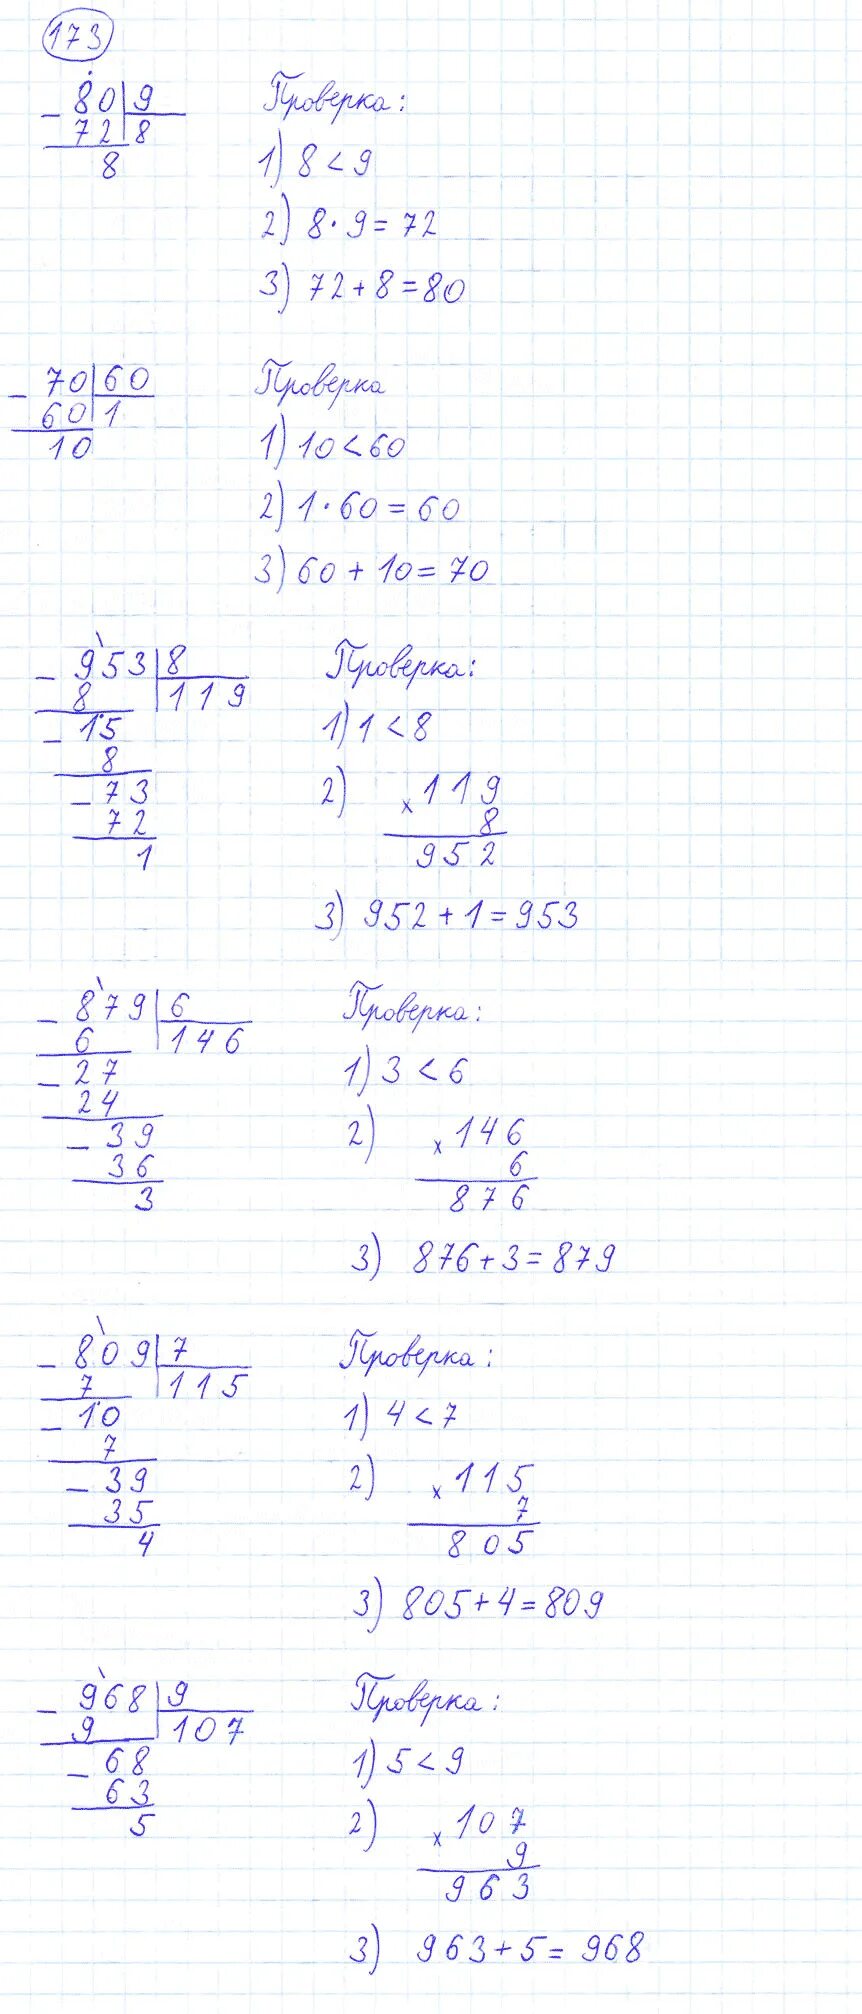 173
- 80 | 9
72 | 8
8
Проверка:
1) 8 < 9
2) 8 · 9 = 72
3) 72 + 8 = 80
- 70 | 60
60 | 1
10
Проверка
1) 10 < 60
2) 1 · 60 = 60
3) 60 + 10 = 70
- 953 | 8
8 | 119
- 15
8
- 73
72
1
Проверка:
1) 1 < 8
2) × 119
8
952
3) 952 + 1 = 953
- 879 | 6
6 | 146
- 27
24
- 39
36
3
Проверка:
1) 3 < 6
2) × 146
6
876
3) 876 + 3 = 879
- 809 | 7
7 | 115
- 10
7
- 39
35
4
Проверка:
1) 4 < 7
2) × 115
7
805
3) 805 + 4 = 809
- 968 | 9
9 | 107
- 68
63
5
Проверка:
1) 5 < 9
2) × 107
9
963
3) 963 + 5 = 968